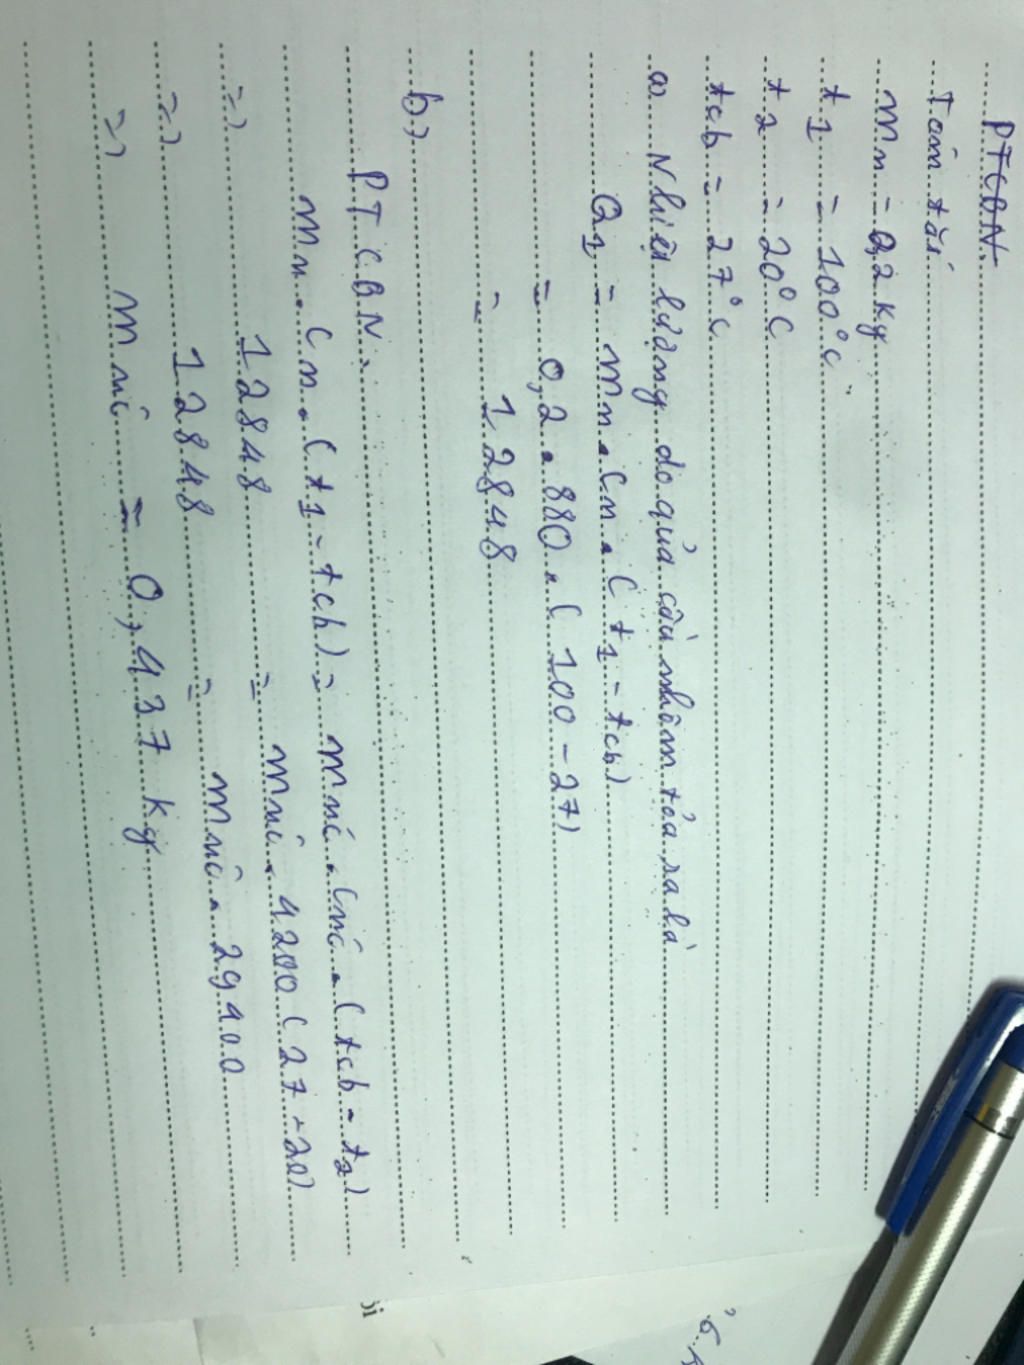 PTCBN.
Tóm tắt
mn = 0,2 kg
t1 = 100°C
t2 = 20°C
tcb = 27°C
a) Nhiệt lượng do quả cầu nhôm tỏa ra là
Q1 = mn . Cn . ( t1 - tcb)
= 0,2 . 880 . ( 100 - 27)
= 12848
b,)
PT CBN.
mn . Cn . ( t1 - tcb) = mnc . Cnc . ( tcb - t2)
=) 12848 = mnc . 4200 ( 27 - 20)
=) 12848 = mnc . 29400
=) mnc = 0,437 kg